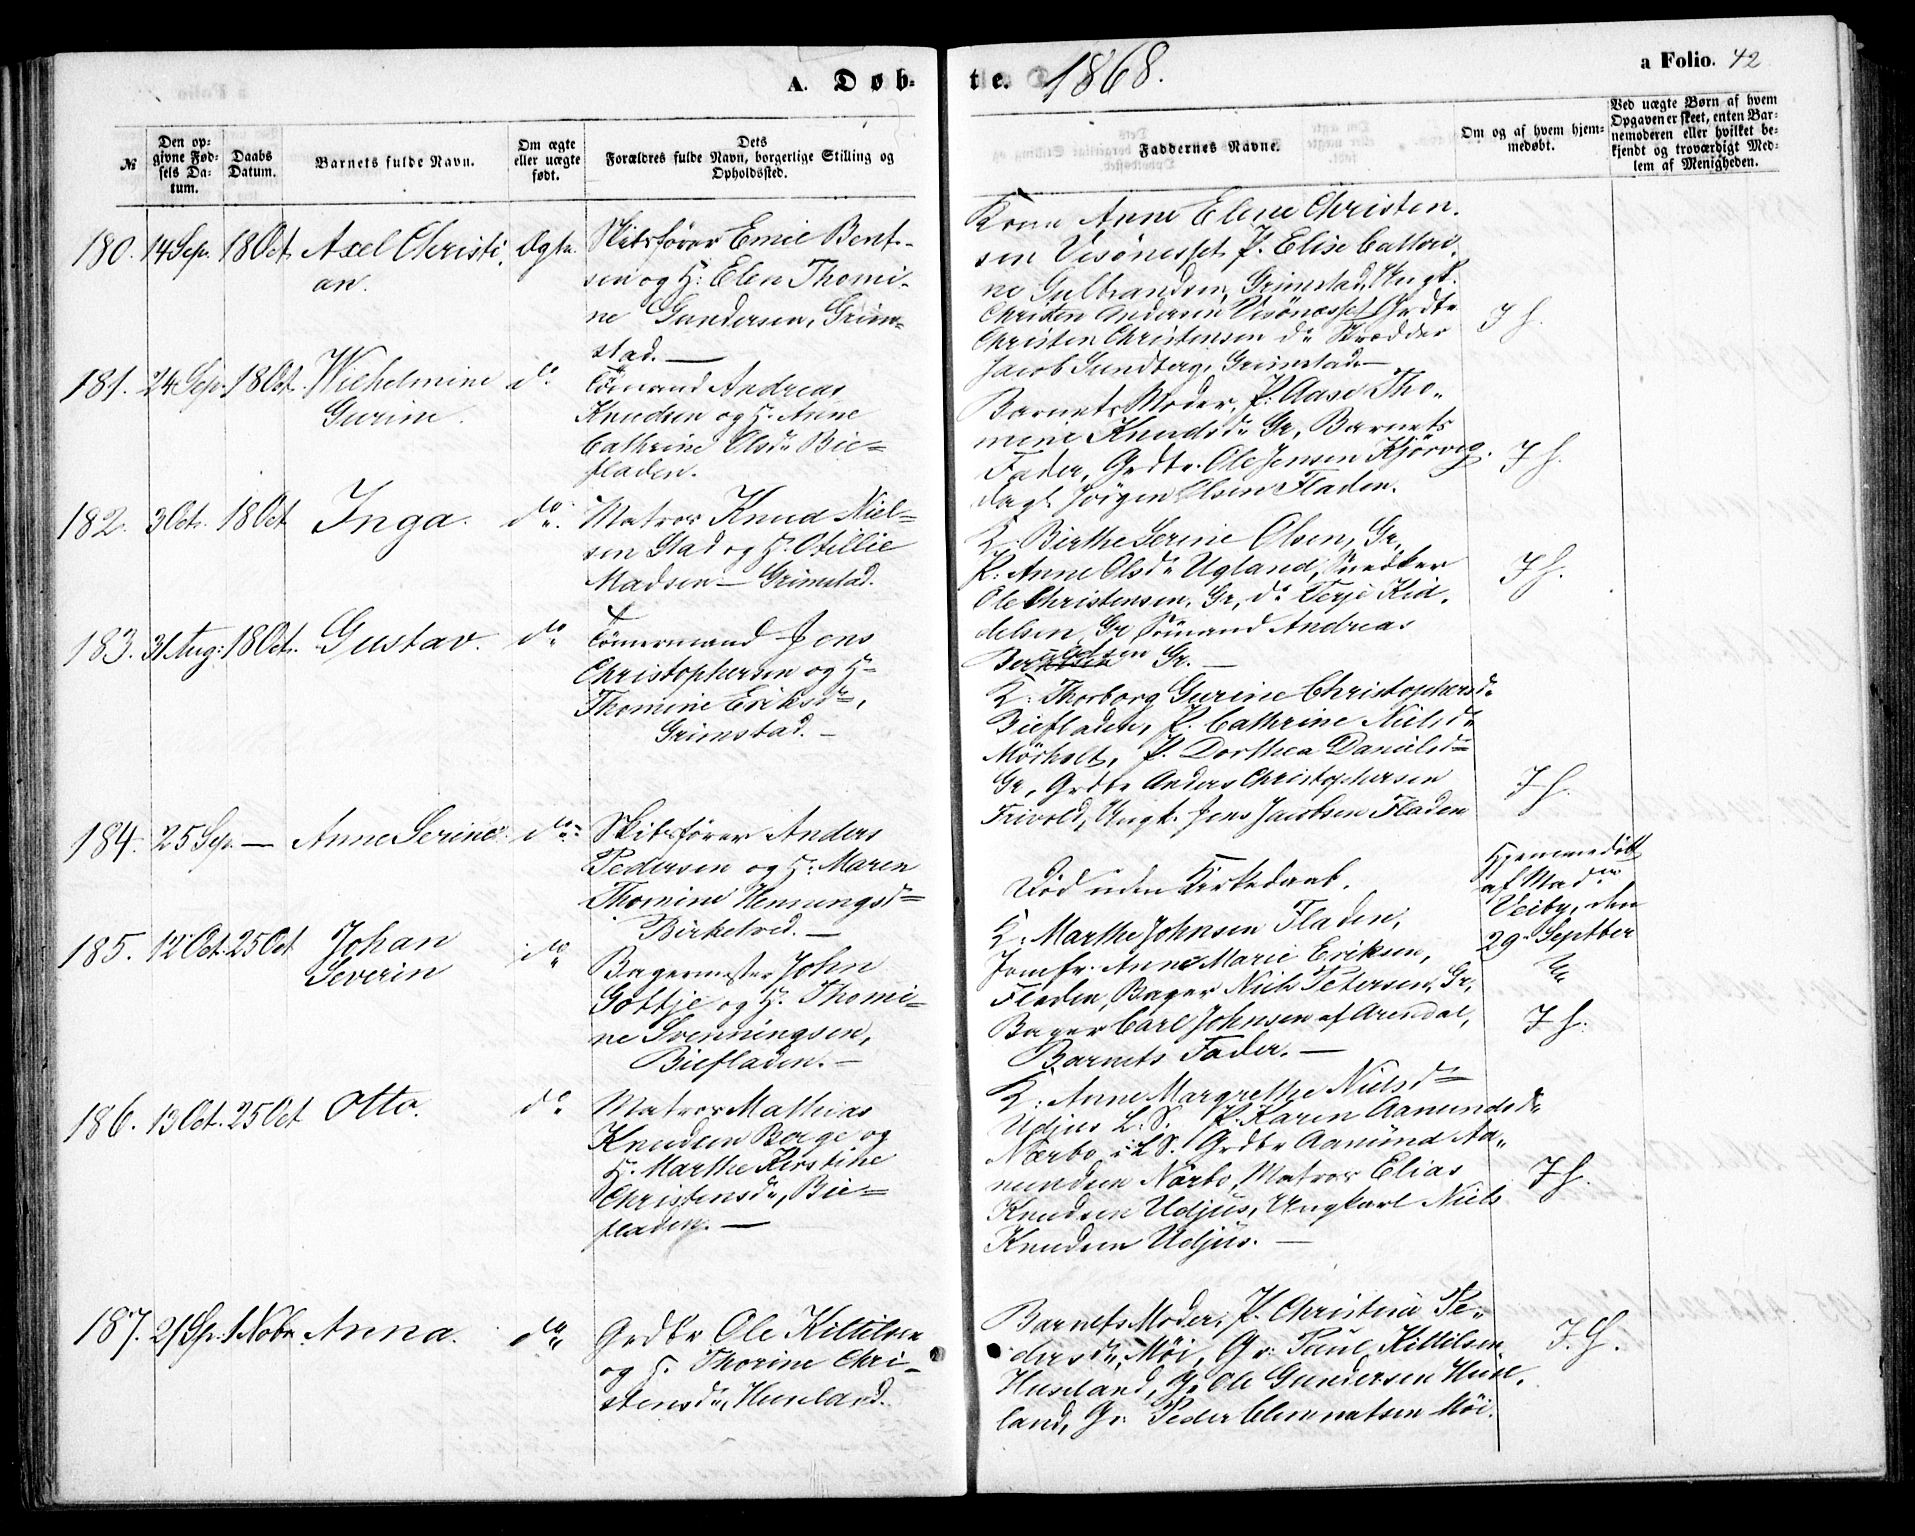 A. Døb-
te. 1868.
a Folio. 42
№
Den op-
givne Fød-
sels Da-
tum.
Daabs
Datum.
Barnets fulde Navn.
Om ægte
eller uægte
født.
Dets
Forældres fulde Navn, borgerlige Stilling og
Opholdssted.
Faddernes Navne.
Om og af hvem hjem-
medøbt.
Ved uægte Børn af hvem
Opgaven er skeet, enten Bar-
nemoderen eller hvilket be-
kjendt og troværdigt Med-
lem af Menigheden.
180. 14 Sep. 18 Oct. Axel Christi-
an.
Ægte.
Skibsfører Emil Bent-
sen og H: Elen Thomi-
ne Gundersen, Grim-
stad. —
Kone Anne Elene Christen-
sen Vesönesset P. Elise Cathri-
ne Gulbrandsen, Grimstad, Ungk.
Christen Andersen Vesönesset Grdbr
Christen Christensen do Skrædder
Jacob Sundberg, Grimstad —
J H.
181. 24 Sep. 18 Oct. Wilhelmine
Gurine.
do
Tömand Andreas
Knudsen og H. Anne
Cathrine Olsdr Bie-
fladen.
Barnets Moder, P: Aase Tho-
mine Knudsdr Gr, Barnets
Fader, Grdbr. Ole Jensen Kjörvig.
Dagl. Jörgen Olsen Fladen.
J H.
182. 3 Oct. 18 Oct Inga.
do.
Matros Knud Niel-
sen Stad og H. Otillie
Madsen — Grimstad.
K. Birthe Serine Olsen, Gr,
P: Anne Olsdr Ugland, Snedker
Ole Christensen, Gr, do Terje Kid-
delsen Gr Sömand Andreas
Gr. —
J H.
183. 31 Aug: 18 Oct. Gustav.
do
Tömmermand Jens
Christophersen og H.
Thomine Eriksdr,
Grimstad. —
K: Thorborg Gurine Christophersdr
Biefladen, P. Cathrine Nielsdr
Mörholt, P. Dorthea Danielsdr
Gr, Grdbr Anders Christophersen
Frivold, Ungk. Jens Jacobsen Fladen
J H.
184. 25 Sep. — Anne Serine.
do.
Skibsfører Anders
Pedersen og H: Maren
Thomine Hemingsdr
Birketved. —
Död uden Kirkedaab.
Hjemmedöbt
af Madm
Veiby, den
29. Septber
185. 12 Oct. 25 Oct Johan
Severin
do
Bagermester John
Gottje og H. Thomi-
ne Svenningsen,
Biefladen. —
K: Marthe Johnsen Fladen,
Jomfr. Anne Marie Eriksen,
Fladen, Bager Niels Petersen, Gr,
Bager Carl Johnsen af Arendal,
Barnets Fader. —
J H.
186. 13 Oct. 25 Oct Otto.
do
Matros Mathias
Knudsen Berge og
H. Marthe Kirstine
Christensdr, Bie-
fladen. —
K: Anne Margrethe Nielsdr
Udjus L. S. P. Karen Aamundsdr
Nærbo i L S. Grdbr Aamund Aa-
mundsen Nörbo, Matros Elias
Knudsen Udjus, Ungkarl Niels
Knudsen Udjus. —
J H.
187. 21 Sp. 1 Nobr. Anna.
do
Grdbr Ole Kittilsen
og H. Thorine Chri-
stensdr, Huseland.
Barnets Moder, P. Christine Pe-
dersdr, Möi, Gr: Paul Kittilsen
Huseland, Gr Ole Gundersen Huse-
land, Gr: Peder Clemmetsen Möi.
J. H.